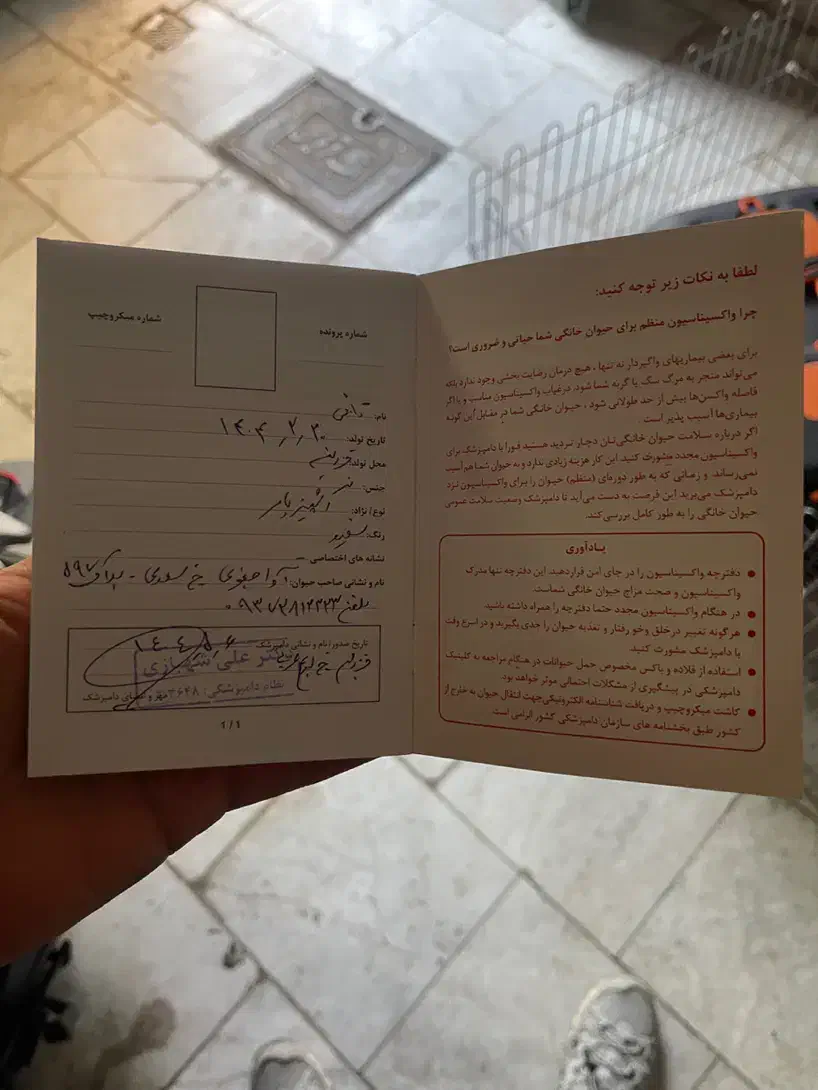 لطفا به نکات زیر توجه کنید:
چرا واکسیناسیون منظم برای حیوان خانگی شما حیاتی و ضروری است؟
برای بعضی بیماریهای واگیردار نه تنها، هیچ درمان رضایت بخشی وجود ندارد بلکه
می‌تواند منجر به مرگ سگ یا گربه شما شود. درغیاب واکسیناسیون مناسب و یا اگر
فاصله واکسن‌ها بیش از حد طولانی شود، حیوان خانگی شما در مقابل این گونه
بیماری‌ها آسیب پذیر است.
اگر درباره سلامت حیوان خانگی‌تان دچار تردید هستید فورا با دامپزشک برای
واکسیناسیون مجدد مشورت کنید. این کار هزینه زیادی ندارد و به حیوان شما هم آسیب
نمی‌رساند. و زمانی که به طور دوره‌ای (منظم) حیوان را برای واکسیناسیون نزد
دامپزشک می‌برید. این فرصت به دست می‌آید تا دامپزشک وضعیت سلامت عمومی
حیوان خانگی را به طور کامل بررسی کند.
یـادآوری
● دفترچه واکسیناسیون را در جای امن قراردهید. این دفترچه تنها مدرک
واکسیناسیون و صحت مزاج حیوان خانگی شماست.
● در هنگام واکسیناسیون مجدد حتما دفترچه را همراه داشته باشید.
● هرگونه تغییر درخلق وخو رفتار و تغذیه حیوان را جدی بگیرید و در اسرع وقت
با دامپزشک مشورت کنید.
● استفاده از قلاده و باکس مخصوص حمل حیوانات در هنگام مراجعه به کلینیک
دامپزشکی در پیشگیری از مشکلات احتمالی موثر خواهد بود.
● کاشت میکروچیپ و دریافت شناسنامه الکترونیکی جهت انتقال حیوان به خارج از
کشور طبق بخشنامه های سازمان دامپزشکی کشور الزامی است.
شماره پرونده
شماره میکروچیپ
نام:
تاریخ تولد: ۱۴۰۴٫۲٫۳۰
محل تولد: قزوین
جنس: نر
نوع / نژاد:
رنگ: سفید
نشانه های اختصاصی
نام و نشانی صاحب حیوان: آوا خ سعدی - پلاک ۵۹۷
تلفن
تاریخ صدور / نام و نشانی دامپزشک
قزوین خ
دکتر علی شهبازی
نظام دامپزشکی: ۳۶۴۸
مهر و امضای دامپزشک
۱/۱
SiS